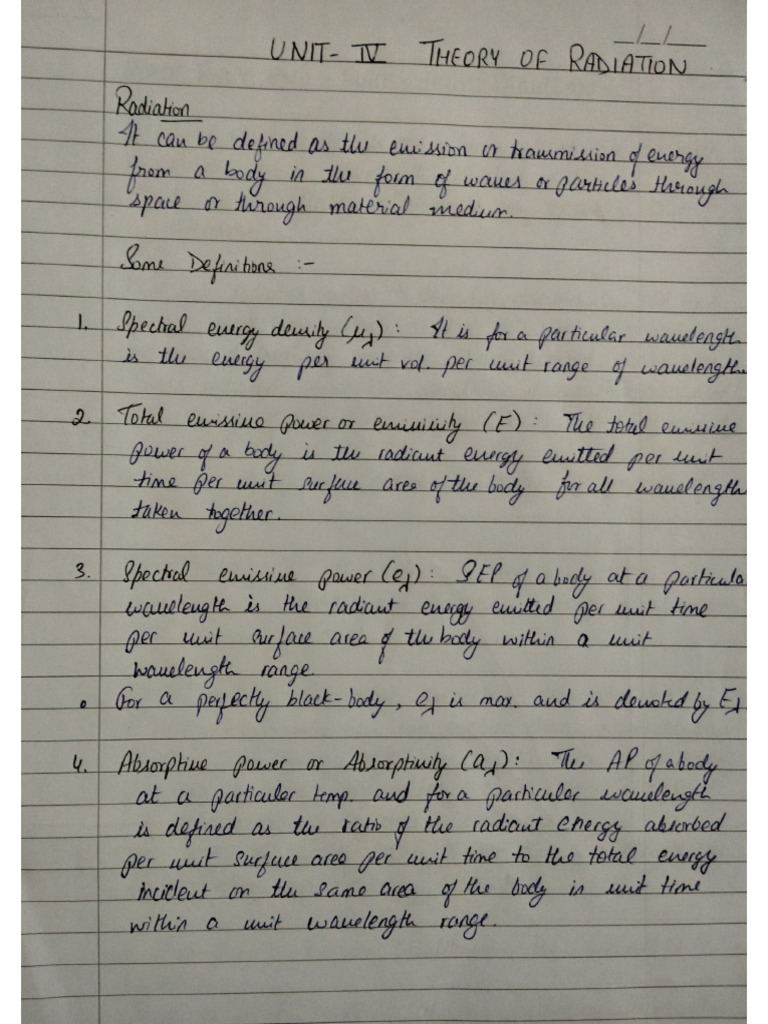 _/_/_
UNIT- IV THEORY OF RADIATION
Radiation
It can be defined as the emission or transmission of energy
from a body in the form of waves or particles through
space or through material medium.
Some Definitions :-
1. Spectral energy density (μλ) : It is for a particular wavelength
is the energy per unit vol. per unit range of wavelength
2. Total emissive power or emissivity (E) : The total emissive
power of a body is the radiant energy emitted per unit
time per unit surface area of the body for all wavelength
taken together.
3. Spectral emissive power (eλ) : SEP of a body at a particula
wavelength is the radiant energy emitted per unit time
per unit surface area of the body within a unit
wavelength range.
• For a perfectly black-body, eλ is max. and is denoted by Eλ
4. Absorptive power or Absorptivity (aλ) : The AP of a body
at a particular temp. and for a particular wavelength
is defined as the ratio of the radiant energy absorbed
per unit surface area per unit time to the total energy
incident on the same area of the body in unit time
within a unit wavelength range.